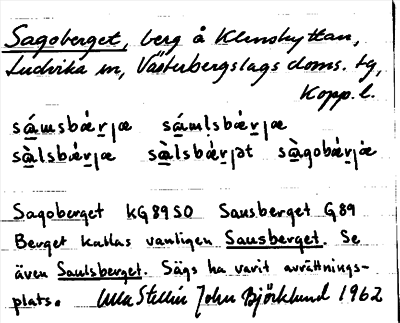 Sagoberget, berg å Klenshyttan,
Ludvika sn, Västerbergslags doms. tg,
Kopp. l.
sá̱msbæ̀ṟjæ sá̱mlsbæ̀ṟjæ
sà̱lsbǽṟjæ sà̱lsbǽṟjət sà̱gobǽṟjæ
Sagoberget kG89SO Sausberget G89
Berget kallas vanligen Sausberget. Se
även Saulsberget. Sägs ha varit avrättnings-
plats. Ulla Stellin John Björklund 1962